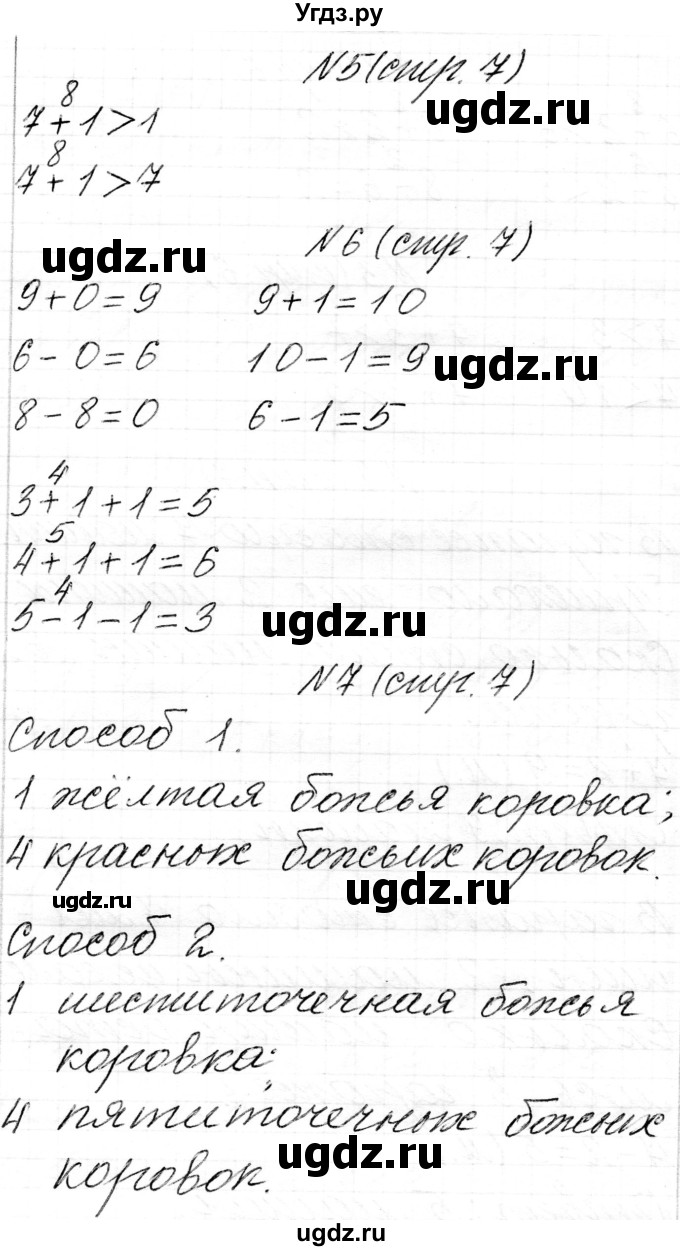 Угдз.ру
N5 (стр. 7)
ugdz.ru
8
7+1>1
8
7+1>7
N6 (стр. 7)
ugdz.ru
9+0=9 9+1=10
6-0=6 10-1=9
ugdz.ru
8-8=0 6-1=5
4
3+1+1=5
5
4+1+1=6
4
5-1-1=3
ugdz.ru
N7 (стр. 7)
Способ 1.
1 жёлтая божья коровка;
4 красных божьих коровок.
ugdz.ru
ugdz.ru
Способ 2.
1 шеститочечная божья
коровка;
4 пятиточечных божьих
коровок.
ugdz.ru
ugdz.ru